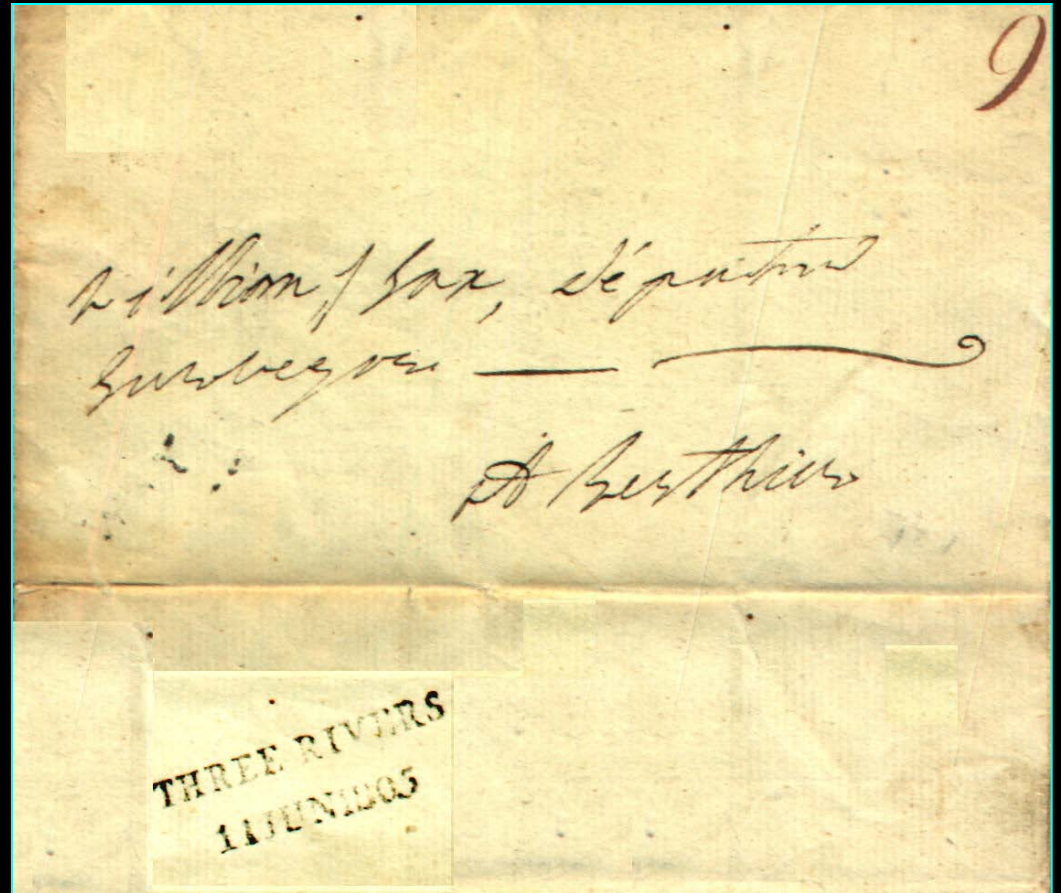 9
William Sax, député
Surveyor
A Berthier
THREE RIVERS
11 JUN 1805